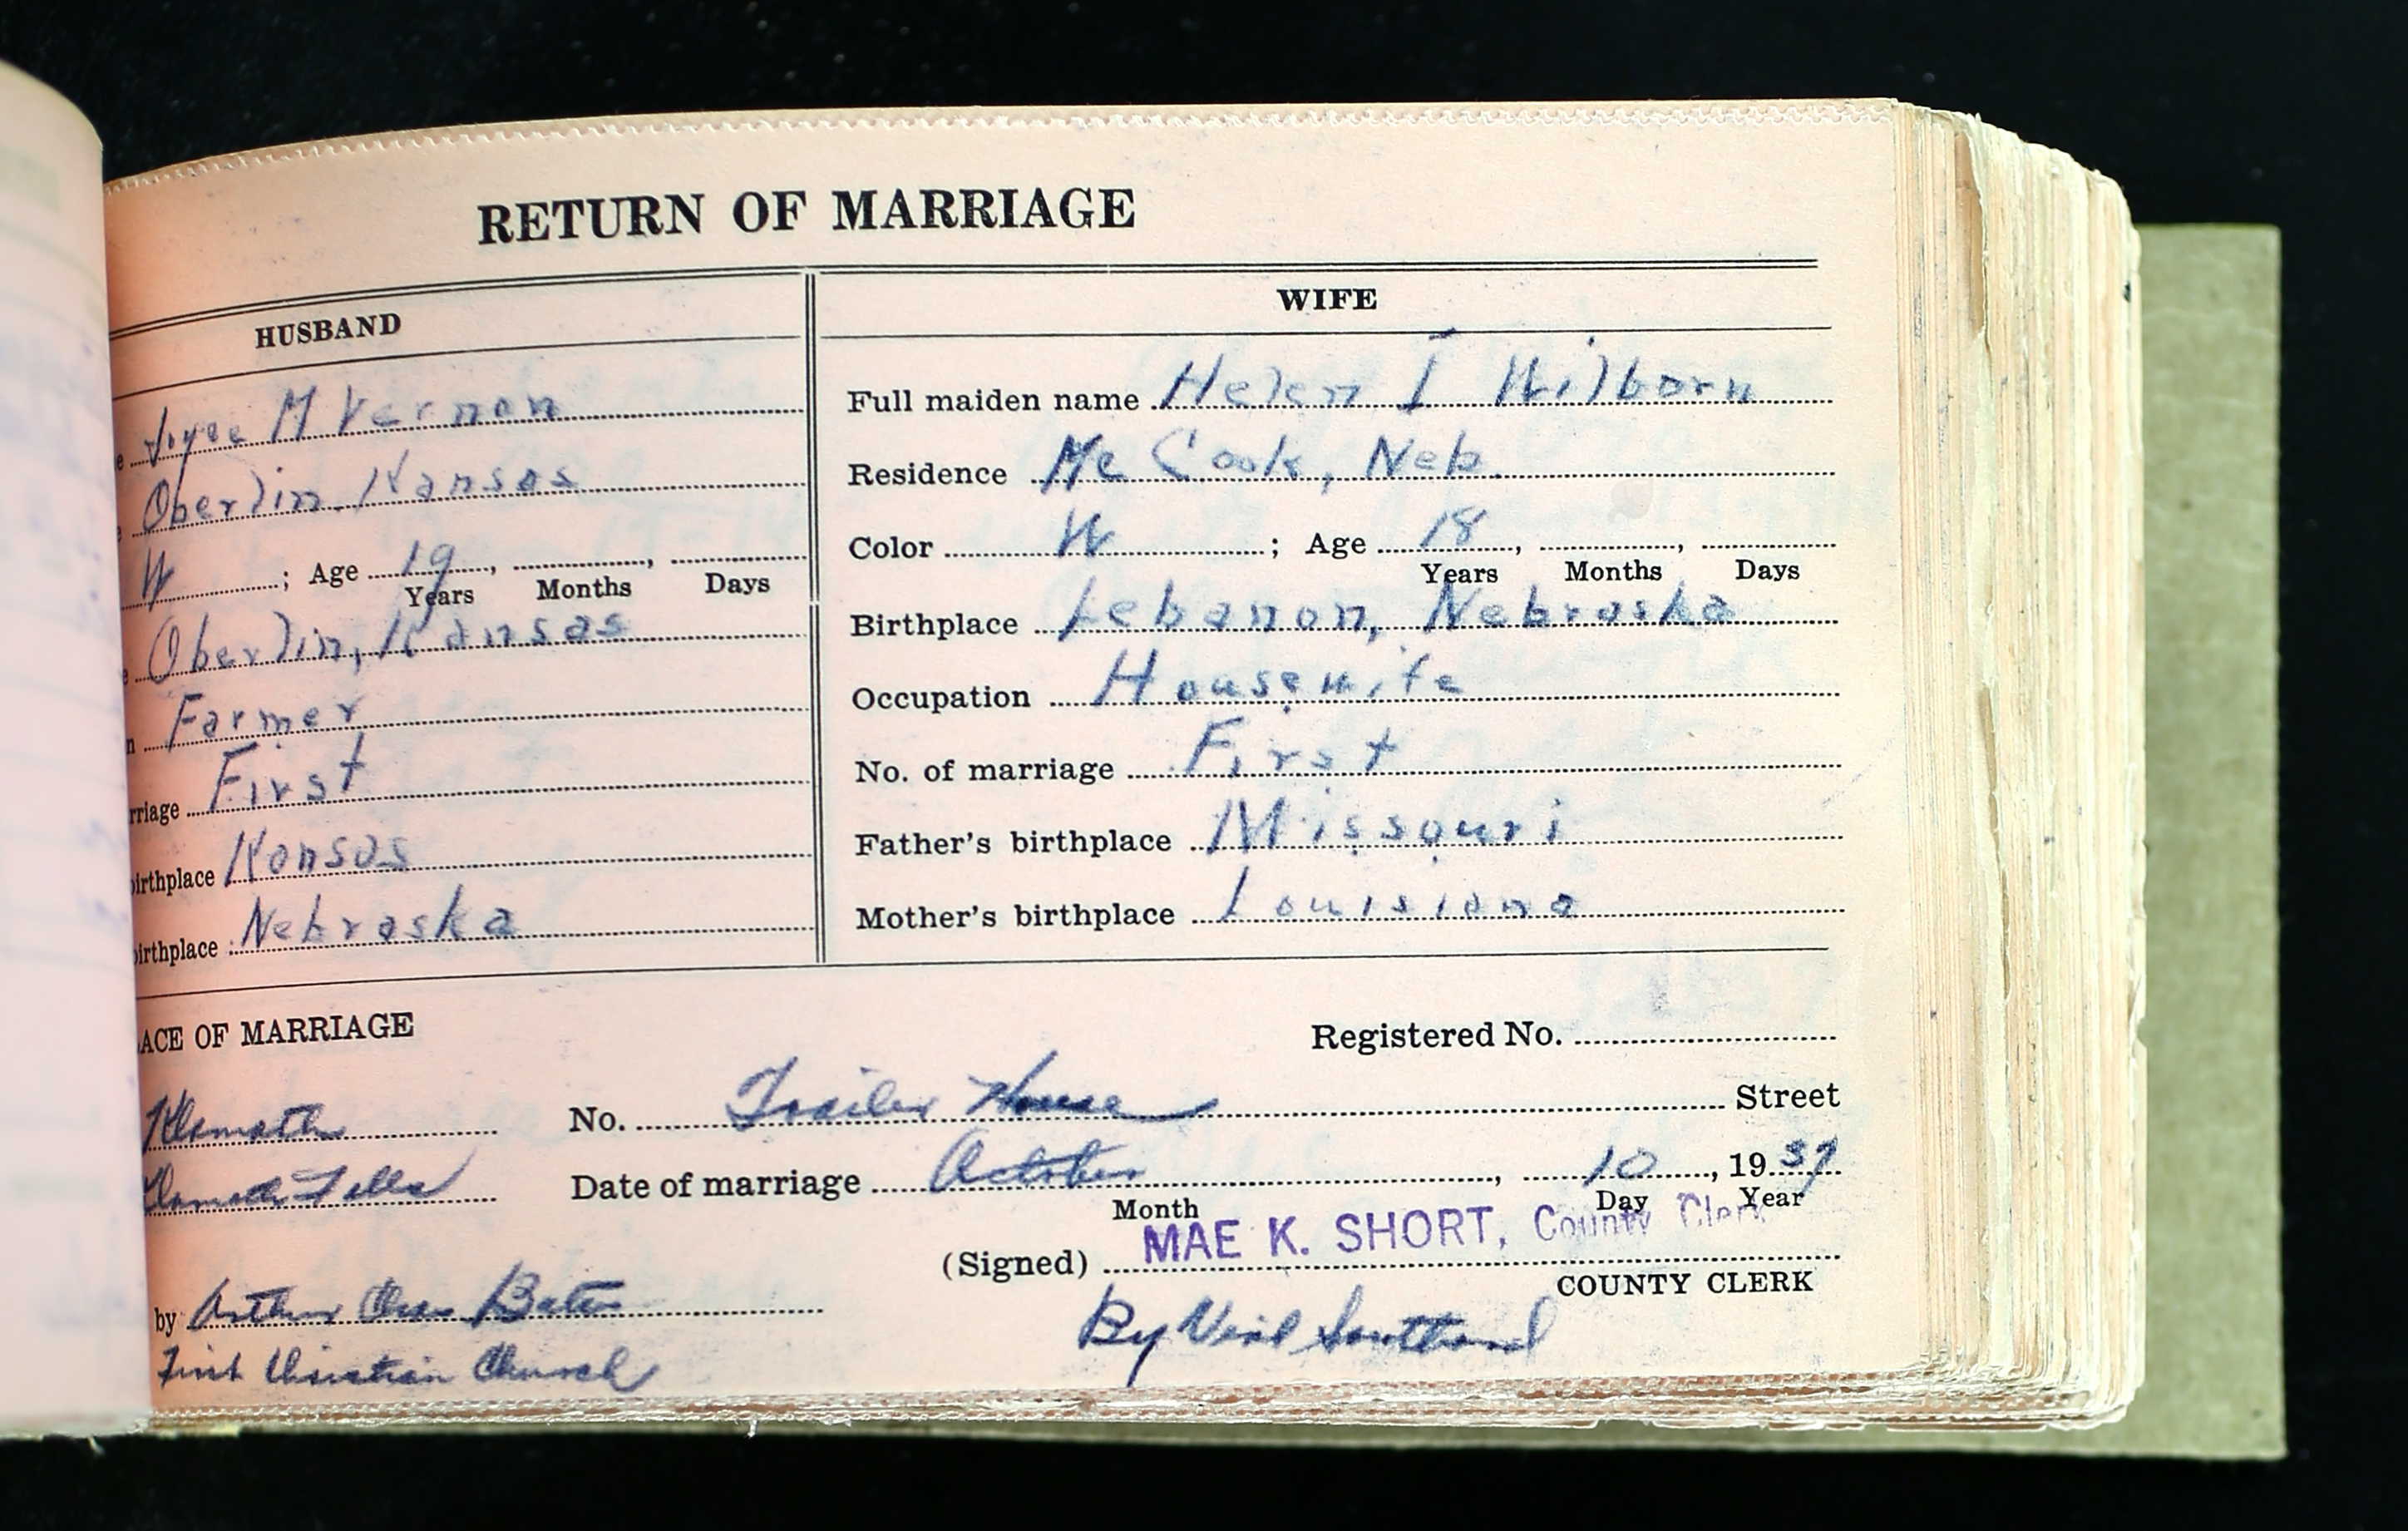 RETURN OF MARRIAGE
HUSBAND
e Joyce M Vernon
e Oberlin. Kansas
W ; Age 19, , 
Years Months Days
e Oberlin, Kansas
n Farmer
rriage First
birthplace Kansas
birthplace Nebraska
WIFE
Full maiden name Helen I Wilborn
Residence Mc Cook, Neb.
Color W ; Age 18, , 
Years Months Days
Birthplace Lebanon, Nebraska
Occupation Housewife
No. of marriage First
Father's birthplace Missouri
Mother's birthplace Louisiana
ACE OF MARRIAGE
Registered No.
Klamath No. Trailer House Street
Klamath Falls Date of marriage October, 10, 1937
Month Day Year
(Signed) MAE K. SHORT, County Clerk
COUNTY CLERK
by Arthur Bates
By
First Christian Church